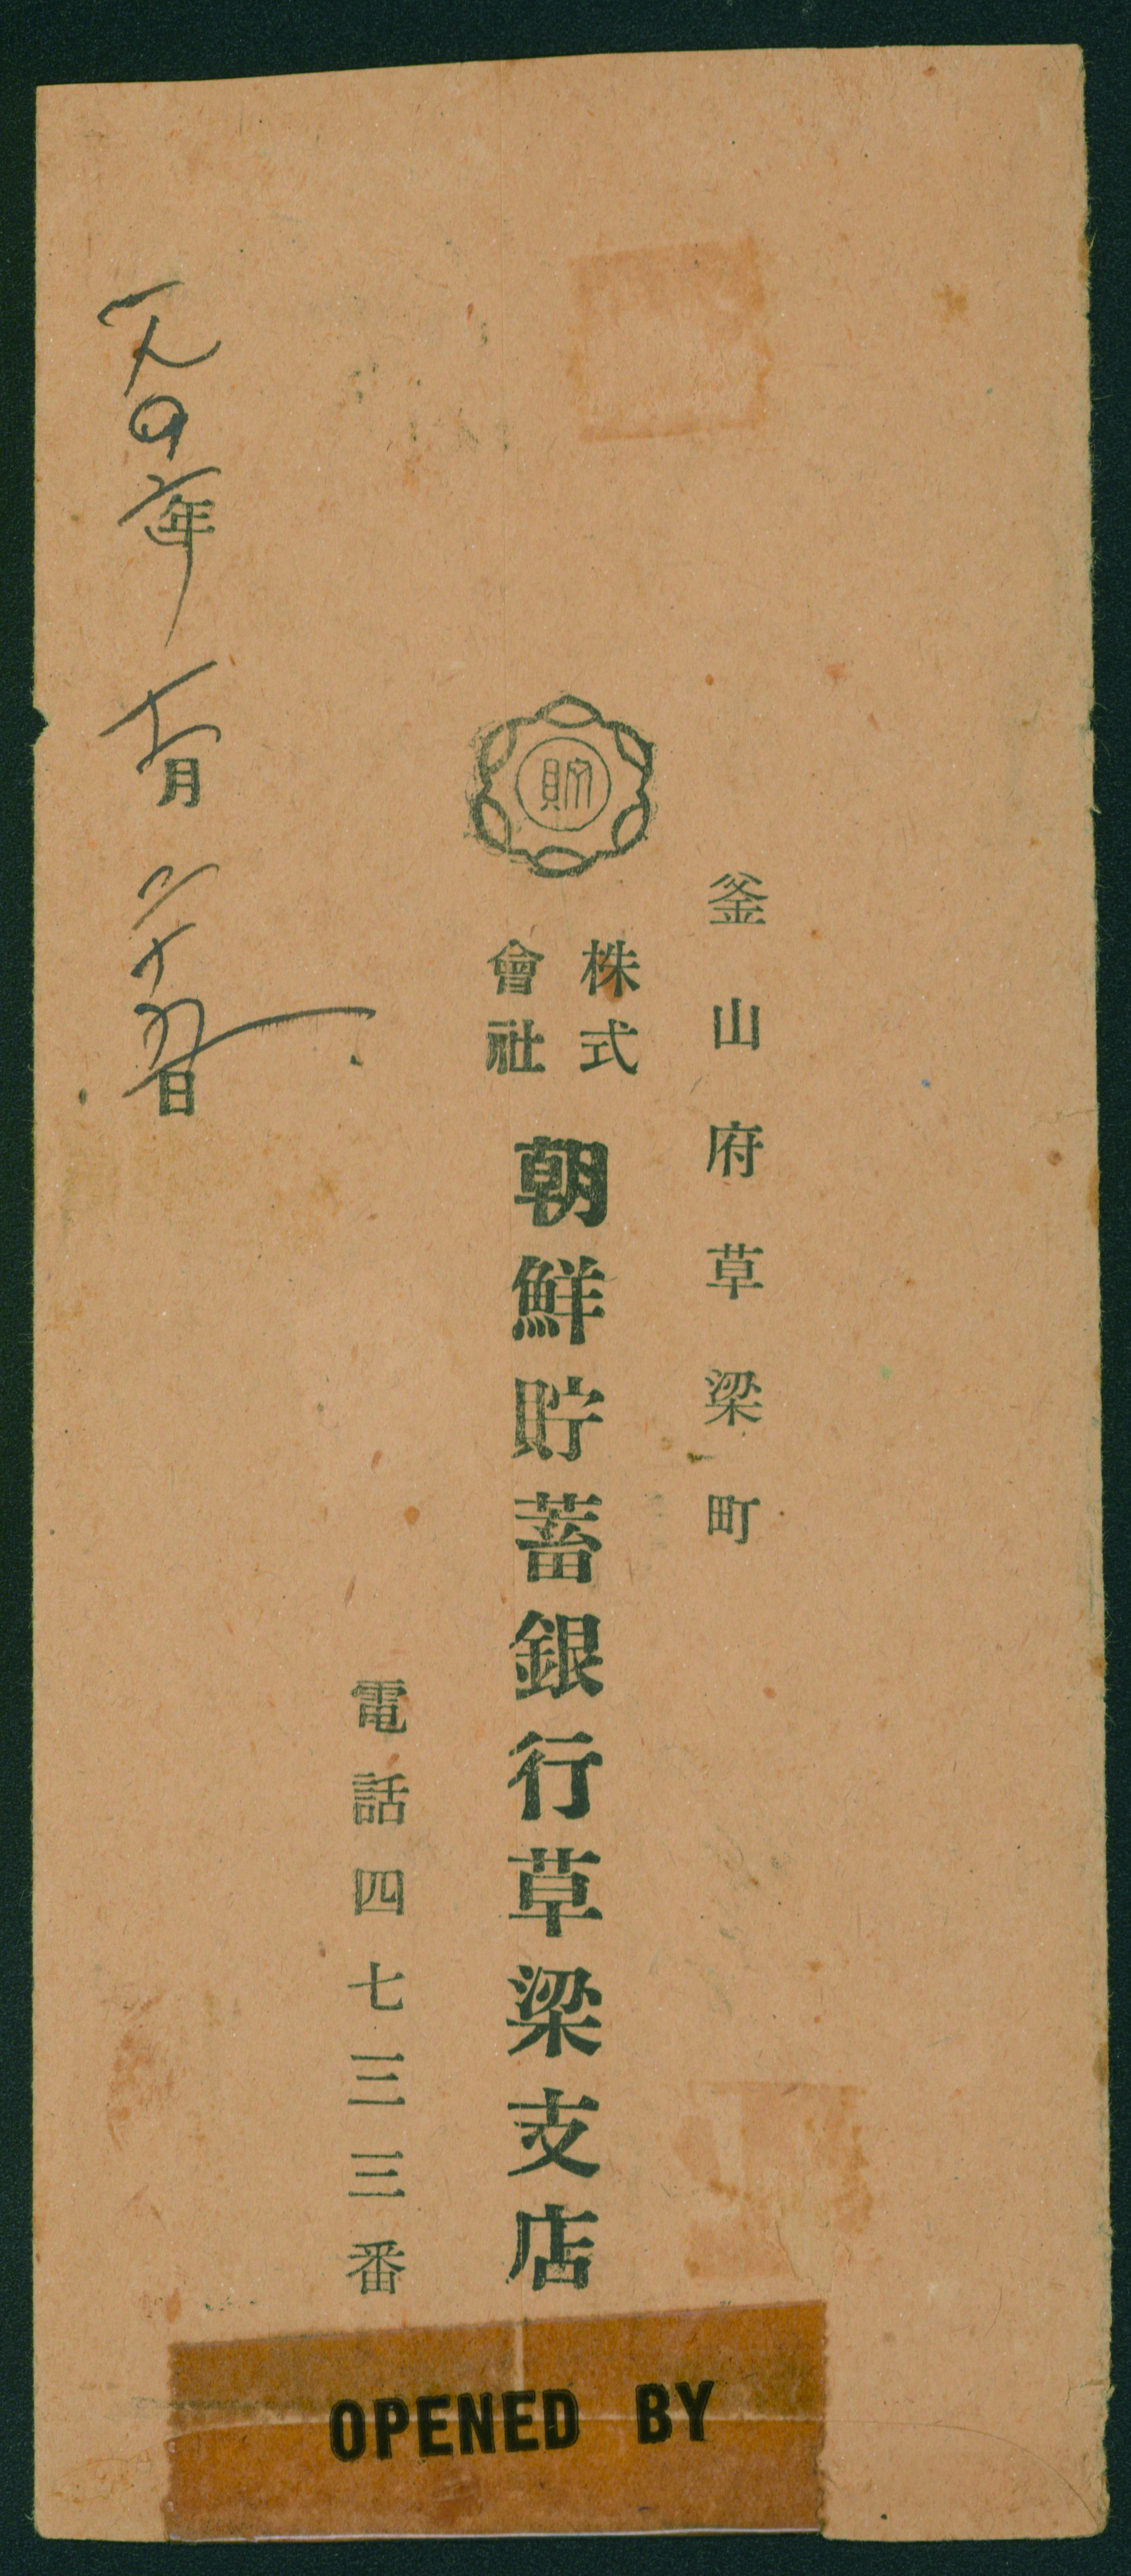 釜山府草梁町
貯
株式
會社
朝鮮貯蓄銀行草梁支店
電話四七三三番
一九四六年 月 二十 日
OPENED BY